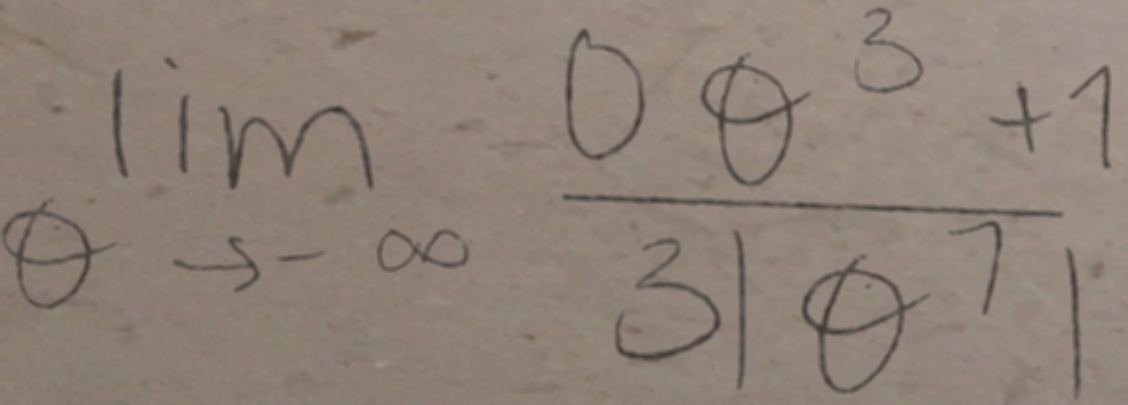 \lim_{\theta \to -\infty} \frac{0\theta^3 + 1}{3|\theta^7|}